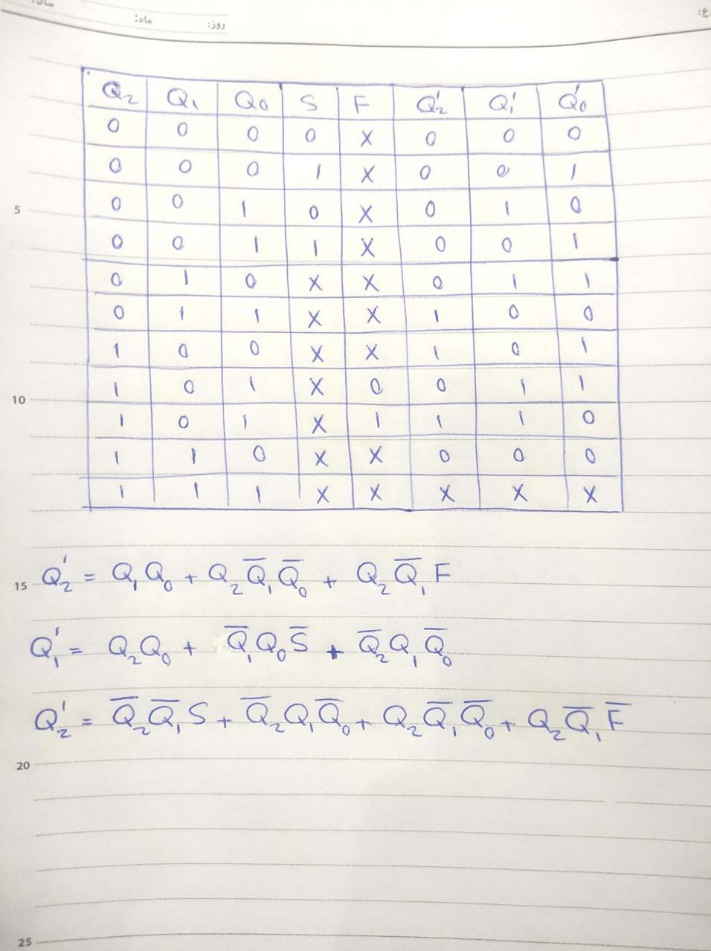 ماه:
روز:
Q₂ Q₁ Q₀ S F Q₂' Q₁' Q₀'
0 0 0 0 X 0 0 0
0 0 0 1 X 0 0 1
0 0 1 0 X 0 1 0
0 0 1 1 X 0 0 1
0 1 0 X X 0 1 1
0 1 1 X X 1 0 0
1 0 0 X X 1 0 1
1 0 1 X 0 0 1 1
1 0 1 X 1 1 1 0
1 1 0 X X 0 0 0
1 1 1 X X X X X
Q₂' = Q₁Q₀ + Q₂Q̅₁Q̅₀ + Q₂Q̅₁F
Q₁' = Q₂Q₀ + Q̅₁Q₀S̅ + Q̅₂Q₁Q̅₀
Q₂' = Q̅₂Q̅₁S + Q̅₂Q₁Q̅₀ + Q₂Q̅₁Q̅₀ + Q₂Q̅₁F̅
5
10
15
20
25